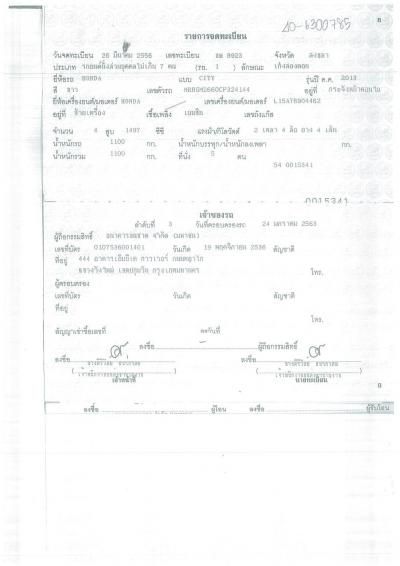 40-6300785
8
รายการจดทะเบียน
วันจดทะเบียน 26 มีนาคม 2556 เลขทะเบียน 8923 จังหวัด สงขลา
ประเภท รถยนต์นั่งส่วนบุคคลไม่เกิน 7 คน (รย. 1 ) ลักษณะ เก๋งสองตอน
ยี่ห้อรถ HONDA แบบ CITY รุ่นปี ค.ศ. 2013
สี ขาว เลขตัวรถ อยู่ที่
ยี่ห้อเครื่องยนต์/มอเตอร์ HONDA เลขเครื่องยนต์/มอเตอร์ L15A78904462
อยู่ที่ ซ้ายเครื่อง เชื้อเพลิง เบนซิน เลขถังแก๊ส
จำนวน 4 สูบ 1497 ซีซี แรงม้า/กิโลวัตต์ 2 เพลา 4 ล้อ ยาง 4 เส้น
น้ำหนักรถ 1100 กก. น้ำหนักบรรทุก/น้ำหนักลงเพลา กก.
น้ำหนักรวม 1100 กก. ที่นั่ง 5 คน
54 0015341
0015341
เจ้าของรถ
ลำดับที่ 3 วันที่ครอบครองรถ 24 มกราคม 2563
ผู้ถือกรรมสิทธิ์ ธนาคารธนชาต จำกัด (มหาชน)
เลขที่บัตร 0107536001401 วันเกิด 19 พฤศจิกายน 2536 สัญชาติ
ที่อยู่ 444 อาคารเอ็มบีเค ทาวเวอร์ ถนนพญาไท
แขวงวังใหม่ เขตปทุมวัน กรุงเทพมหานคร โทร.
ผู้ครอบครอง
เลขที่บัตร วันเกิด สัญชาติ
ที่อยู่
โทร.
สัญญาเช่าซื้อเลขที่ ลงวันที่
ลงชื่อ ผู้ถือกรรมสิทธิ์
ลงชื่อ ลงชื่อ
เจ้าหน้าที่ นายทะเบียน
8
ลงชื่อ ผู้โอน ลงชื่อ ผู้รับโอน